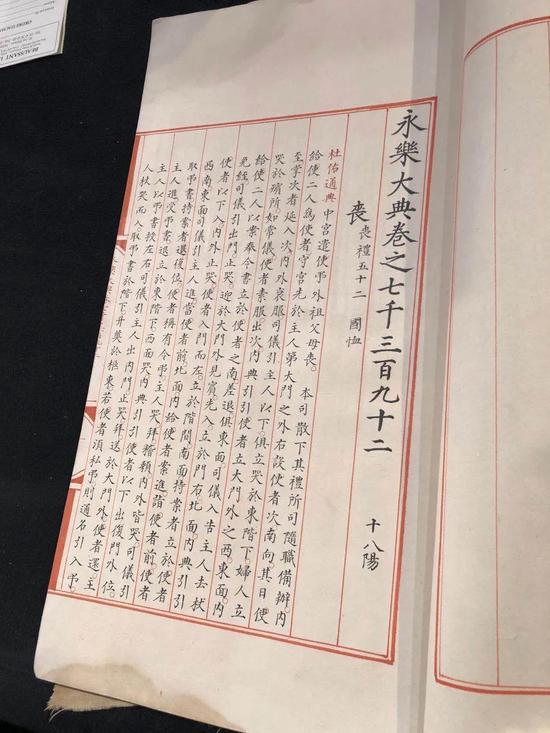 永樂大典卷之七千三百九十二 十八陽
喪 喪禮五十二 國恤
杜佑通典 中宮遣使弔外祖父母喪。 本司散下其禮所司隨職備辦。內
給使二人為使者守宮先於主人第大門之外右設使者次南向其日使
至掌次者延入次內外衰服司儀引主人以下俱立哭於東階下婦人立
哭於殯所如常儀使者素服出次內典引引使者立大門外之西東面內
給使二人以案奉令書立於使者之南差退俱東面司儀入告主人去杖
免絰司儀引出門止哭迎於大門外見賓先入立於門右北面內典引引
使者以下入內外止哭使者入門而左立於階間南面持案者立於使者
西南東面司儀引主人進當使者前北面內給使者案進詣使者前使者
取弔書持案者退復位使者稱有令弔主人哭拜稽顙內外皆哭司儀引
主人進受弔書退立於東階下西面哭內典引引使者以下出復門外位
主人以弔書授左右司儀引主人出內門止哭拜送於大門外使者還主
人杖哭而入取弔書於階下升奠於柩東若使者須私弔則通名引入弔
BEAUSSANT